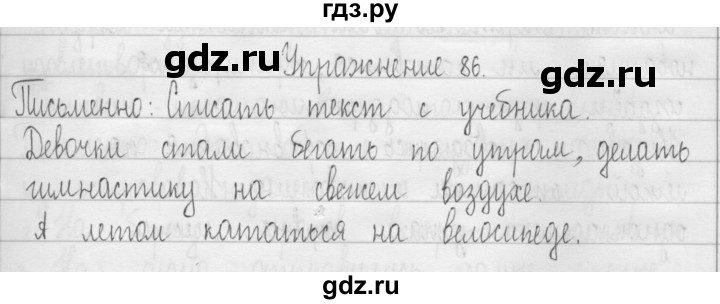 гдз.ру
gdz.ru
gdz.ru
Упражнение 86.
Письменно: Списать текст с учебника.
Девочки стали бегать по утрам, делать
гимнастику на свежем воздухе.
А летом кататься на велосипеде.
gdz.ru
gdz.ru